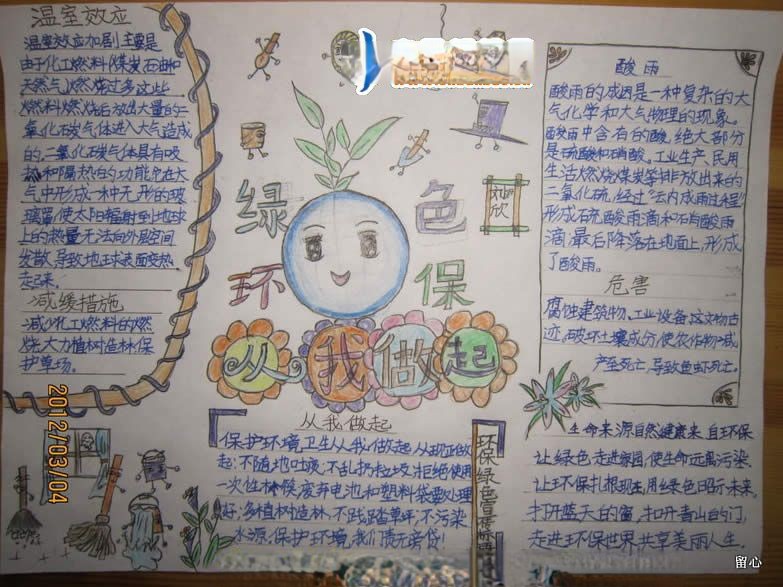 温室效应
温室效应加剧主要是
由于化工燃料(煤炭石油和
天然气)燃烧过多这些
燃料燃烧后放出大量的二
氧化碳气体进入大气造成
的.二氧化碳气体具有吸
热和隔热的功能.它在大
气中形成一种无形的玻
璃罩,使太阳辐射到地球
上的热量无法向外层空间
发散,导致地球表面变热
起来.
减缓措施
减少化工燃料的燃
烧,大力植树造林,保
护草场。
绿色
环保
刘欣
从我做起
酸雨
酸雨的成因是一种复杂的大
气化学和大气物理的现象。
酸雨中含有的酸,绝大部分
是硫酸和硝酸。工业生产、民用
生活燃烧煤炭等排放出来的
二氧化硫,经过“云内成雨过程”
形成硫酸雨滴和硝酸雨
滴,最后降落在地面上,形成
了酸雨。
危害
腐蚀建筑物、工业设备、文物古
迹,破坏土壤成分,使农作物减
产至死亡,导致鱼虾死亡。
从我做起
保护环境卫生从我做起,从现在做
起:不随地吐痰,不乱扔垃圾,拒绝使用
一次性木筷,废弃电池和塑料袋要处理
好,多植树造林,不践踏草坪,不污染
水源,保护环境,我们责无旁贷!
环保绿色
生命来源自然,健康来自环保
让绿色走进家园,使生命远离污染.
让环保扎根现在,用绿色昭示未来.
打开蓝天的窗,打开青山的门,
走进环保世界,共享美丽人生。
2012/03/04
留心